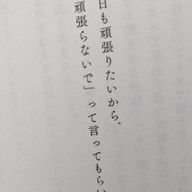 日も頑張りたいから、
頑張らないで」って言ってもらい